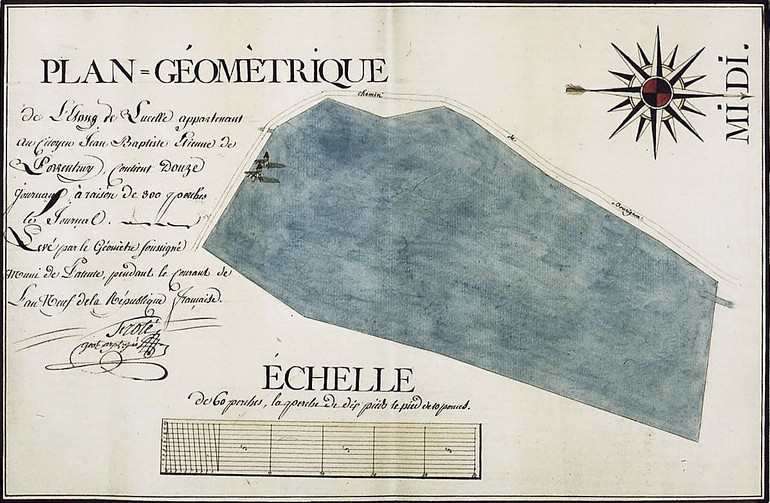 PLAN=GÉOMÈTRIQUE
de L'Etang de Lucelle appartenant
au Citoyen Jean Baptiste Etienne de
Porrentruy, contient Douze
Journaux à raison de 300 q perches
le Journal.
Levé par le Géomètre soussigné
muni de Patente, pendant le courant de
l'an Neuf de la République française.
ÉCHELLE
de 60 perches, la perche de dix pieds le pied de 10 pouces.
chemin
de
MIDI.